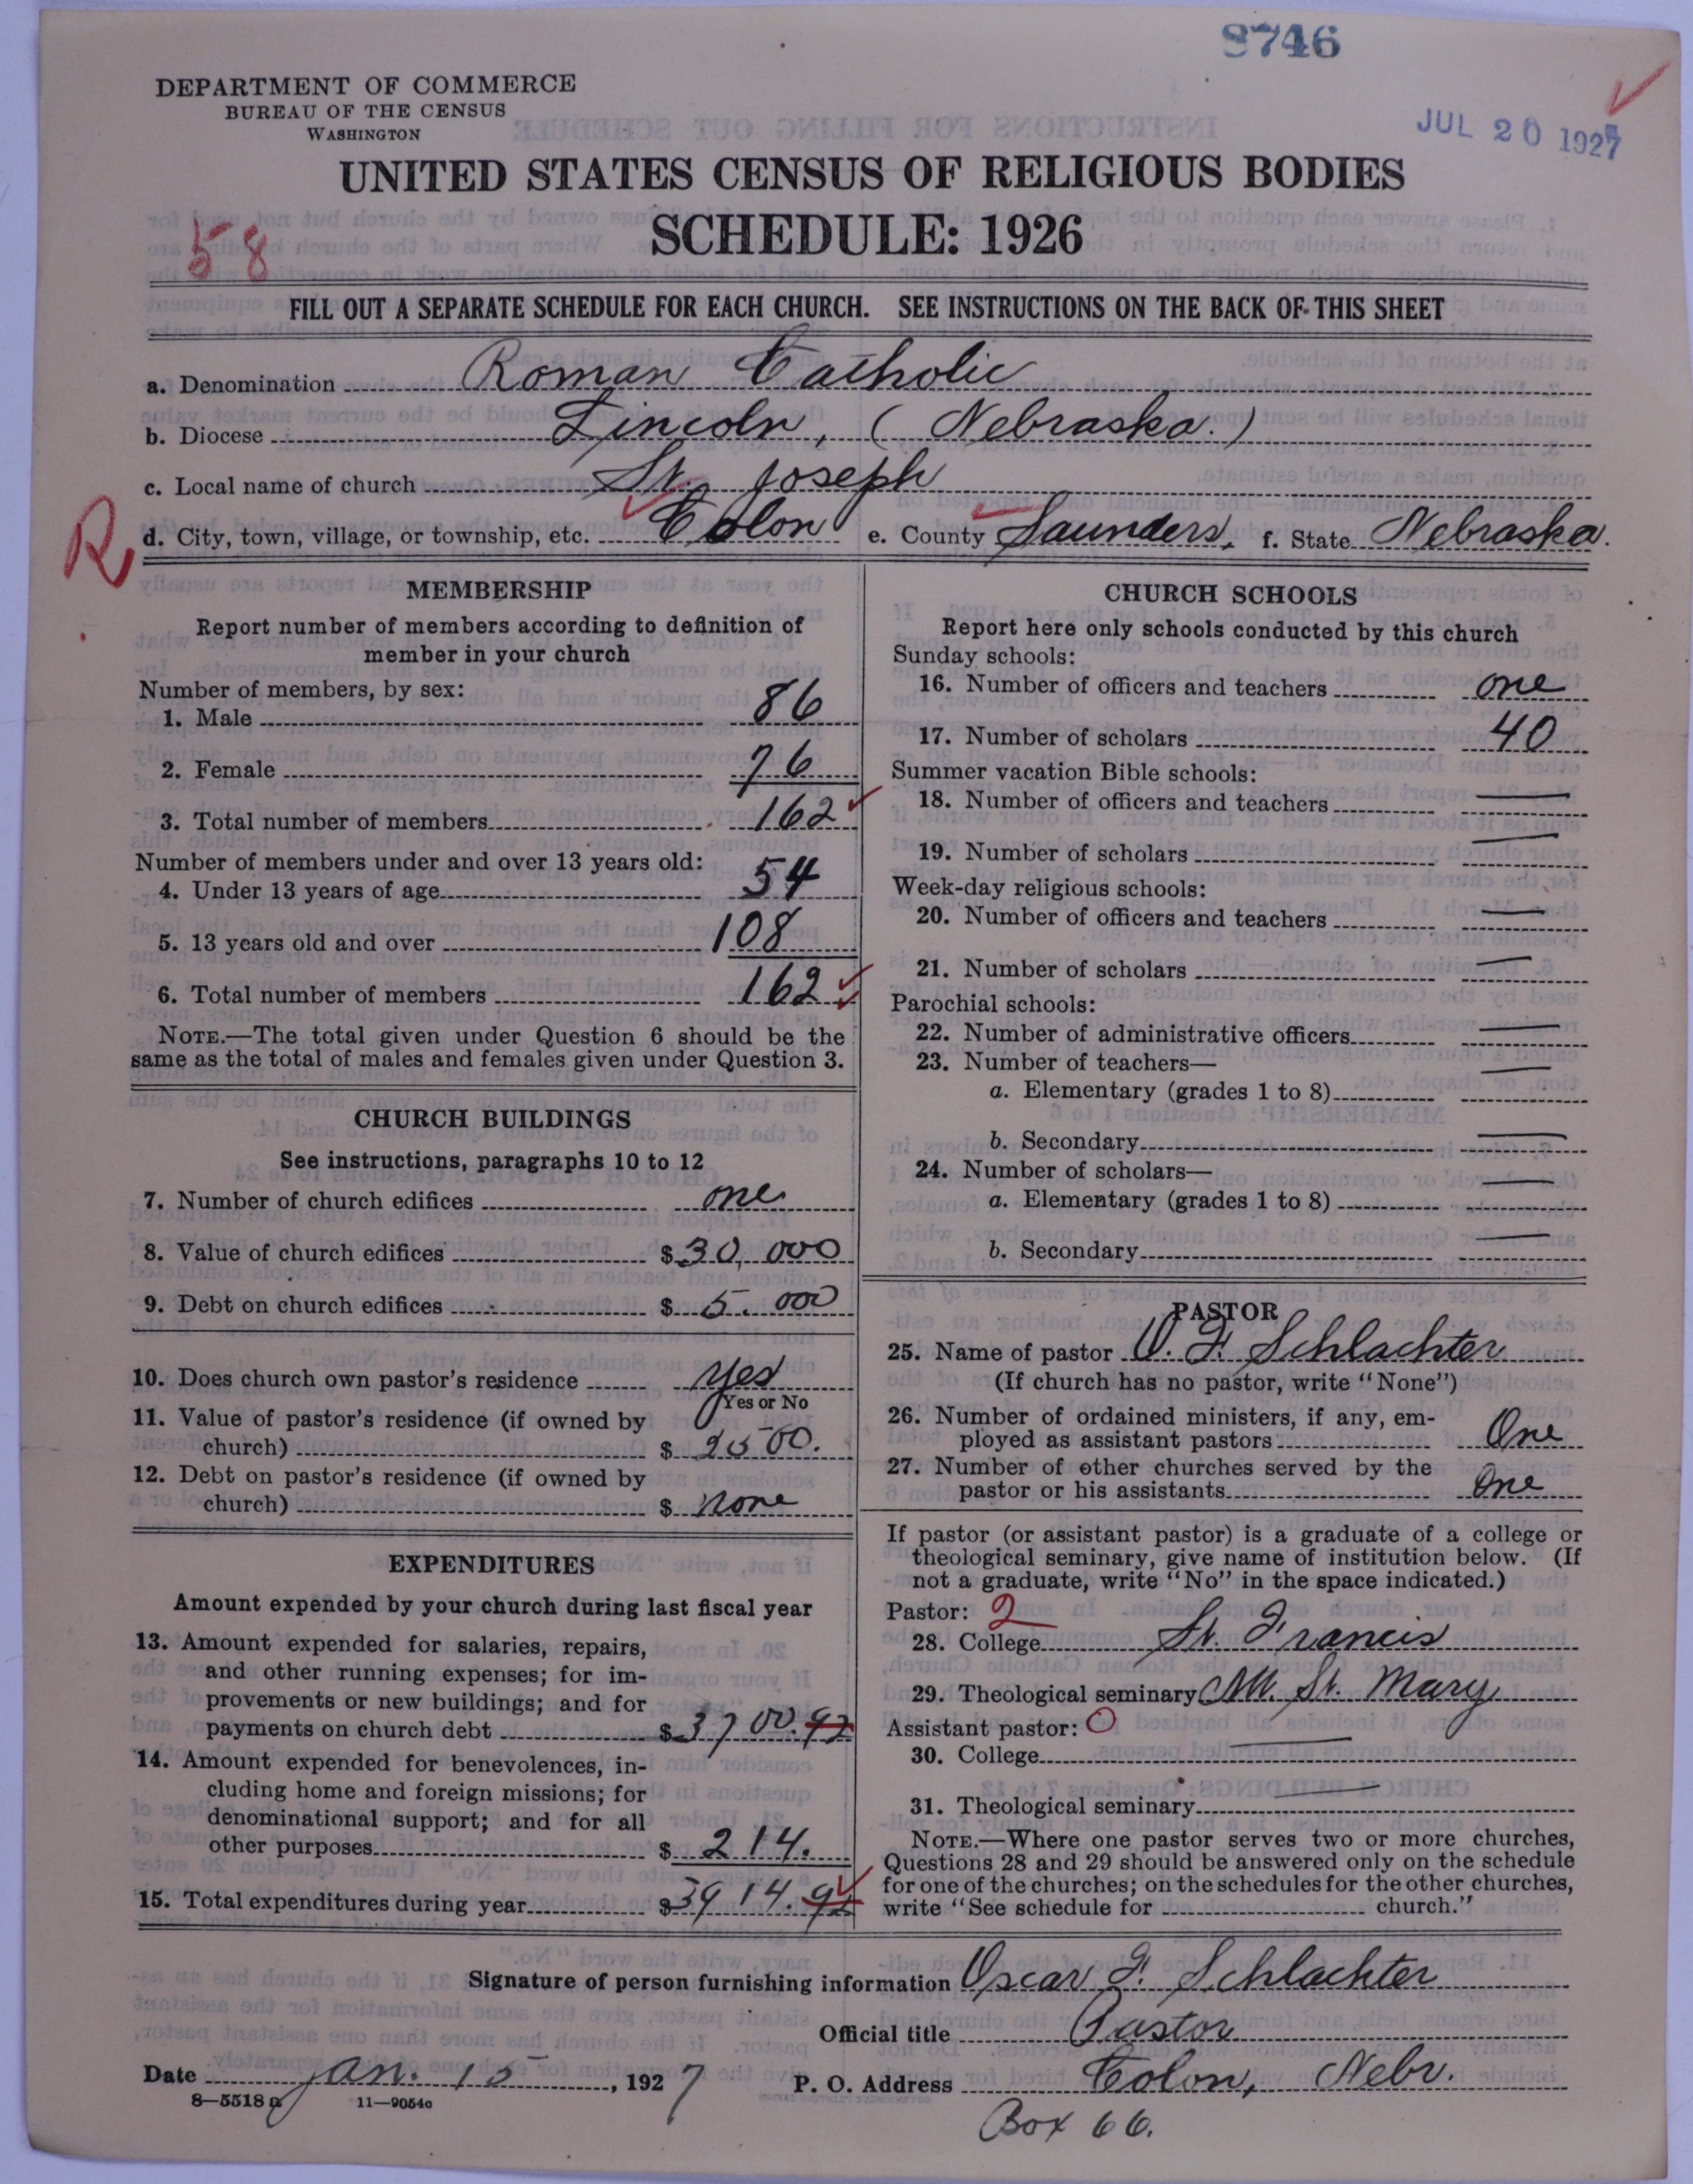 8746
DEPARTMENT OF COMMERCE
BUREAU OF THE CENSUS
WASHINGTON
JUL 20 1927
UNITED STATES CENSUS OF RELIGIOUS BODIES
SCHEDULE: 1926
58
FILL OUT A SEPARATE SCHEDULE FOR EACH CHURCH. SEE INSTRUCTIONS ON THE BACK OF THIS SHEET
a. Denomination Roman Catholic
b. Diocese Lincoln, (Nebraska.)
c. Local name of church St. Joseph
R d. City, town, village, or township, etc. Colon e. County Saunders, f. State Nebraska.
MEMBERSHIP
Report number of members according to definition of
member in your church
Number of members, by sex:
1. Male 86
2. Female 76
3. Total number of members 162
Number of members under and over 13 years old:
4. Under 13 years of age 54
5. 13 years old and over 108
6. Total number of members 162
NOTE.—The total given under Question 6 should be the
same as the total of males and females given under Question 3.
CHURCH BUILDINGS
See instructions, paragraphs 10 to 12
7. Number of church edifices one
8. Value of church edifices $ 30,000
9. Debt on church edifices $ 5.000
10. Does church own pastor's residence yes
Yes or No
11. Value of pastor's residence (if owned by
church) $ 2500.
12. Debt on pastor's residence (if owned by
church) $ none
EXPENDITURES
Amount expended by your church during last fiscal year
13. Amount expended for salaries, repairs,
and other running expenses; for im-
provements or new buildings; and for
payments on church debt $ 3700.92
14. Amount expended for benevolences, in-
cluding home and foreign missions; for
denominational support; and for all
other purposes $ 214.
15. Total expenditures during year $ 3914.92
CHURCH SCHOOLS
Report here only schools conducted by this church
Sunday schools:
16. Number of officers and teachers one
17. Number of scholars 40
Summer vacation Bible schools:
18. Number of officers and teachers —
19. Number of scholars —
Week-day religious schools:
20. Number of officers and teachers —
21. Number of scholars —
Parochial schools:
22. Number of administrative officers —
23. Number of teachers—
a. Elementary (grades 1 to 8) —
b. Secondary —
24. Number of scholars—
a. Elementary (grades 1 to 8) —
b. Secondary —
PASTOR
25. Name of pastor O. F. Schlachter
(If church has no pastor, write "None")
26. Number of ordained ministers, if any, em-
ployed as assistant pastors One
27. Number of other churches served by the
pastor or his assistants One
If pastor (or assistant pastor) is a graduate of a college or
theological seminary, give name of institution below. (If
not a graduate, write "No" in the space indicated.)
Pastor: 2
28. College St. Francis
29. Theological seminary Mt. St. Mary
Assistant pastor: 0
30. College —
31. Theological seminary —
NOTE.—Where one pastor serves two or more churches,
Questions 28 and 29 should be answered only on the schedule
for one of the churches; on the schedules for the other churches,
write "See schedule for church."
Signature of person furnishing information Oscar F. Schlachter
Official title Pastor
Date Jan. 15, 1927 P. O. Address Colon, Nebr.
8—5518 a 11—9054c
Box 66.